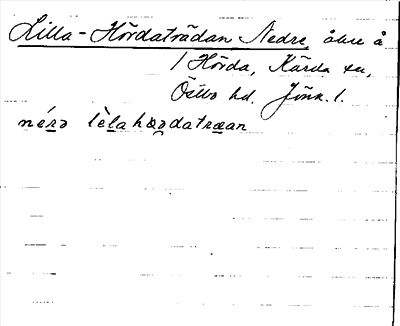 Lilla-Hördaträdan Nedre, åker å
1 Hörda, Kärda sn,
Östbo hd. Jönk. l.
nérə lèla hördatræan